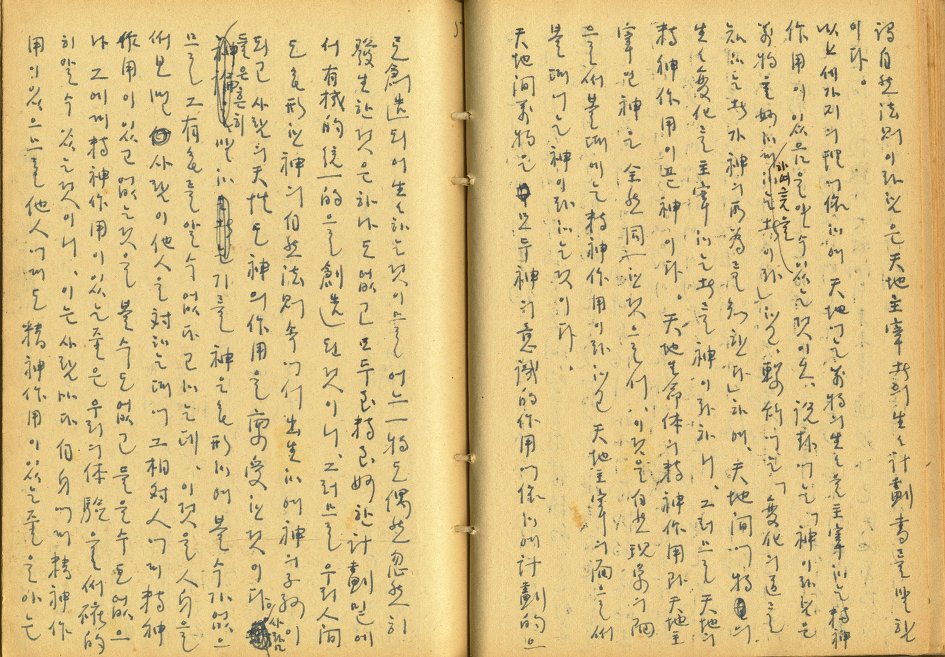 謂自然法則이라 함은 天地主宰者의 生生計劃書를 말함
이다.
以上 세가지의 理에 依하여 天地에는 萬物의 生生을 主宰하는 精神
作用이 있음을 알 수 있는 것이오, 說卦에는 「神이라 함은
萬物을 妙하게 하여 言을 하는 者이라」하고, 繫辭에는 「變化의 道를
知하는 者가 神의 所為를 知한다」하여, 天地間에 物의
生生變化를 主宰하는 者를 神이라 하니, 그러므로 天地의
精神作用이 곧 神이다. 天地生命体의 精神作用과 天地主
宰인 神은 全然 同一한 것으로서, 이것을 自然現象의 面
으로써 볼때에는 精神作用이라 하고 天地主宰의 面으로써
볼때에는 神이라 하는 것이다.
天地間 萬物은 모두 神의 意識的 作用에 依하여 計劃的으
로 創造되어 生生하는 것이므로 어느 一物도 偶然 忽然히
發生한 것은 하나도 없고 모두 至精至妙한 計劃 밑에
서 有機的 統一的으로 創造된 것이니, 그러므로 우리 人間
도 無形한 神의 自然法則 속에서 出生하여 神의 子孫이
되고 사람의 天性도 神의 作用을 稟受한 것이다. 사람
들은 흔히 말하기를 神은 無形하여 볼 수가 없으
므로 그 有無를 알 수 없다고 하는데, 이것을 人身으로
써 보면 사람이 他人을 對하는 때에 그 相對人에게 精神
作用이 있고 없는 것을 볼 수도 없고 들을 수도 없으
나 그에게 精神作用이 있는 줄은 우리의 体驗으로써 確的
히 알 수 있는 것이니, 이는 사람마다 自身에게 精神作
用이 있으므로 他人에게도 精神作用이 있는 줄을 아는